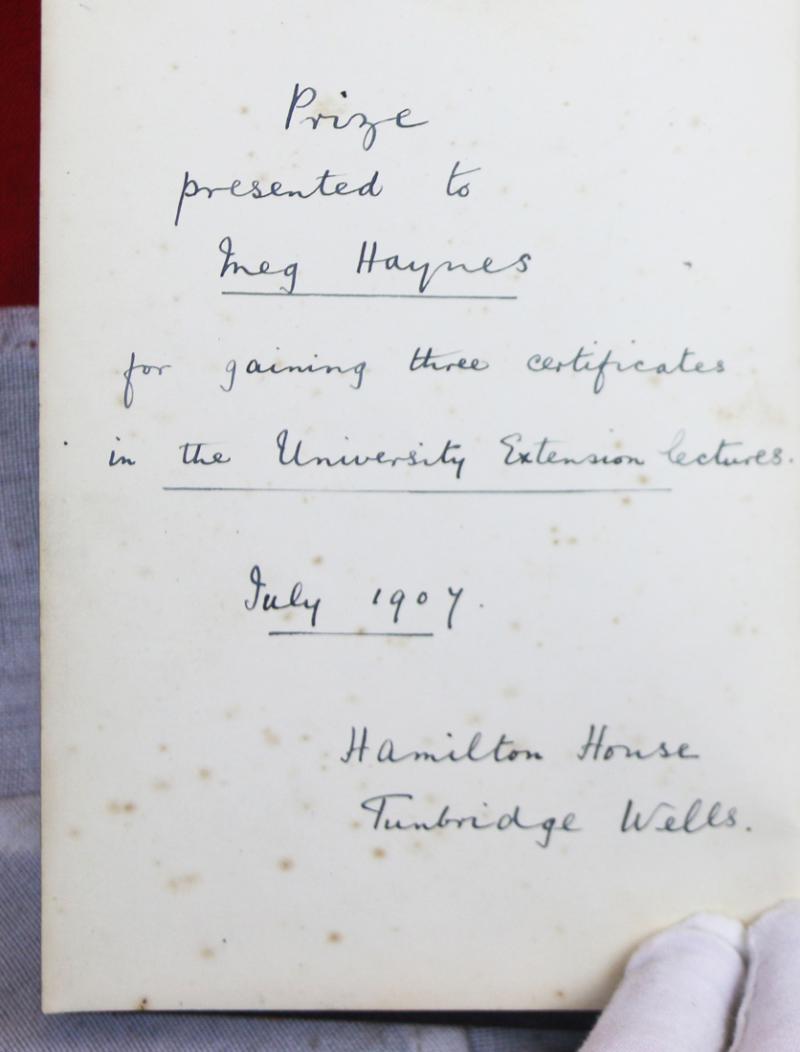 Prize
presented to
Meg Haynes
for gaining three certificates
in the University Extension lectures.
July 1907.
Hamilton House
Tunbridge Wells.